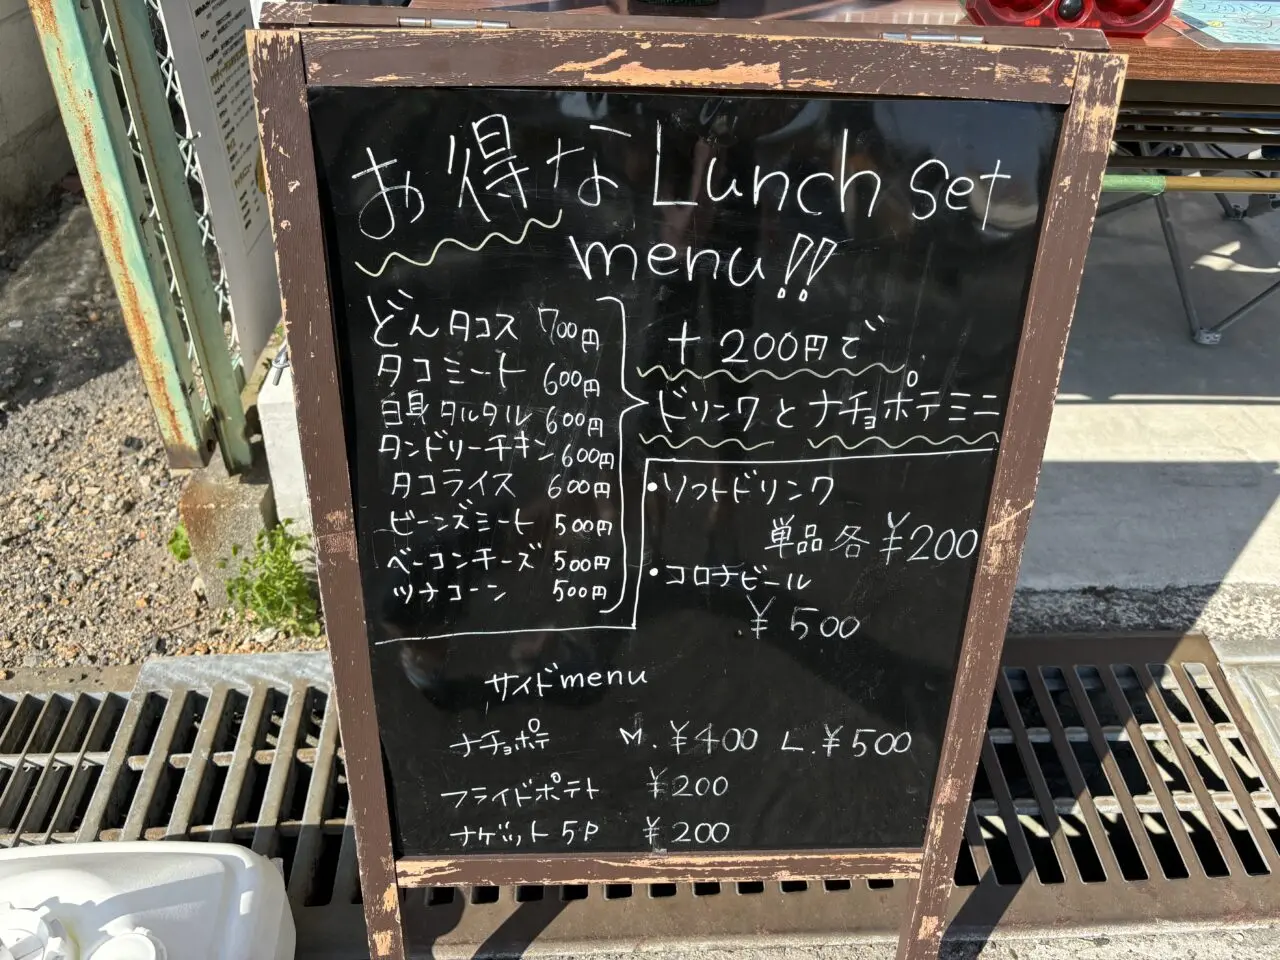 お得な Lunch set
menu!!
どんタコス 700円
タコミート 600円
白身タルタル 600円
タンドリーチキン 600円
タコライス 600円
ビーンズミート 500円
ベーコンチーズ 500円
ツナコーン 500円
+200円で
ドリンクとナチョポテミニ
・ソフトドリンク
単品各¥200
・コロナビール
¥500
サイドmenu
ナチョポテ M.¥400 L.¥500
フライドポテト ¥200
ナゲット5P ¥200